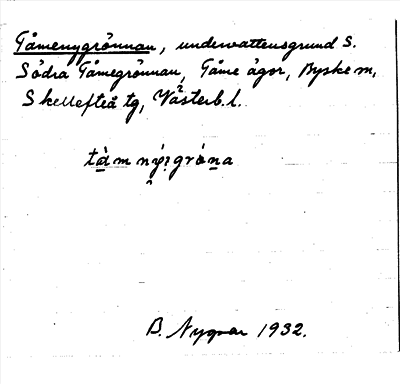 Tåmenygrönnan, undervattensgrund S.
Södra Tåmegrönnan, Tåme ägor, Byske sn,
Skellefteå tg, Västerb. l.
B. Nyman 1932.